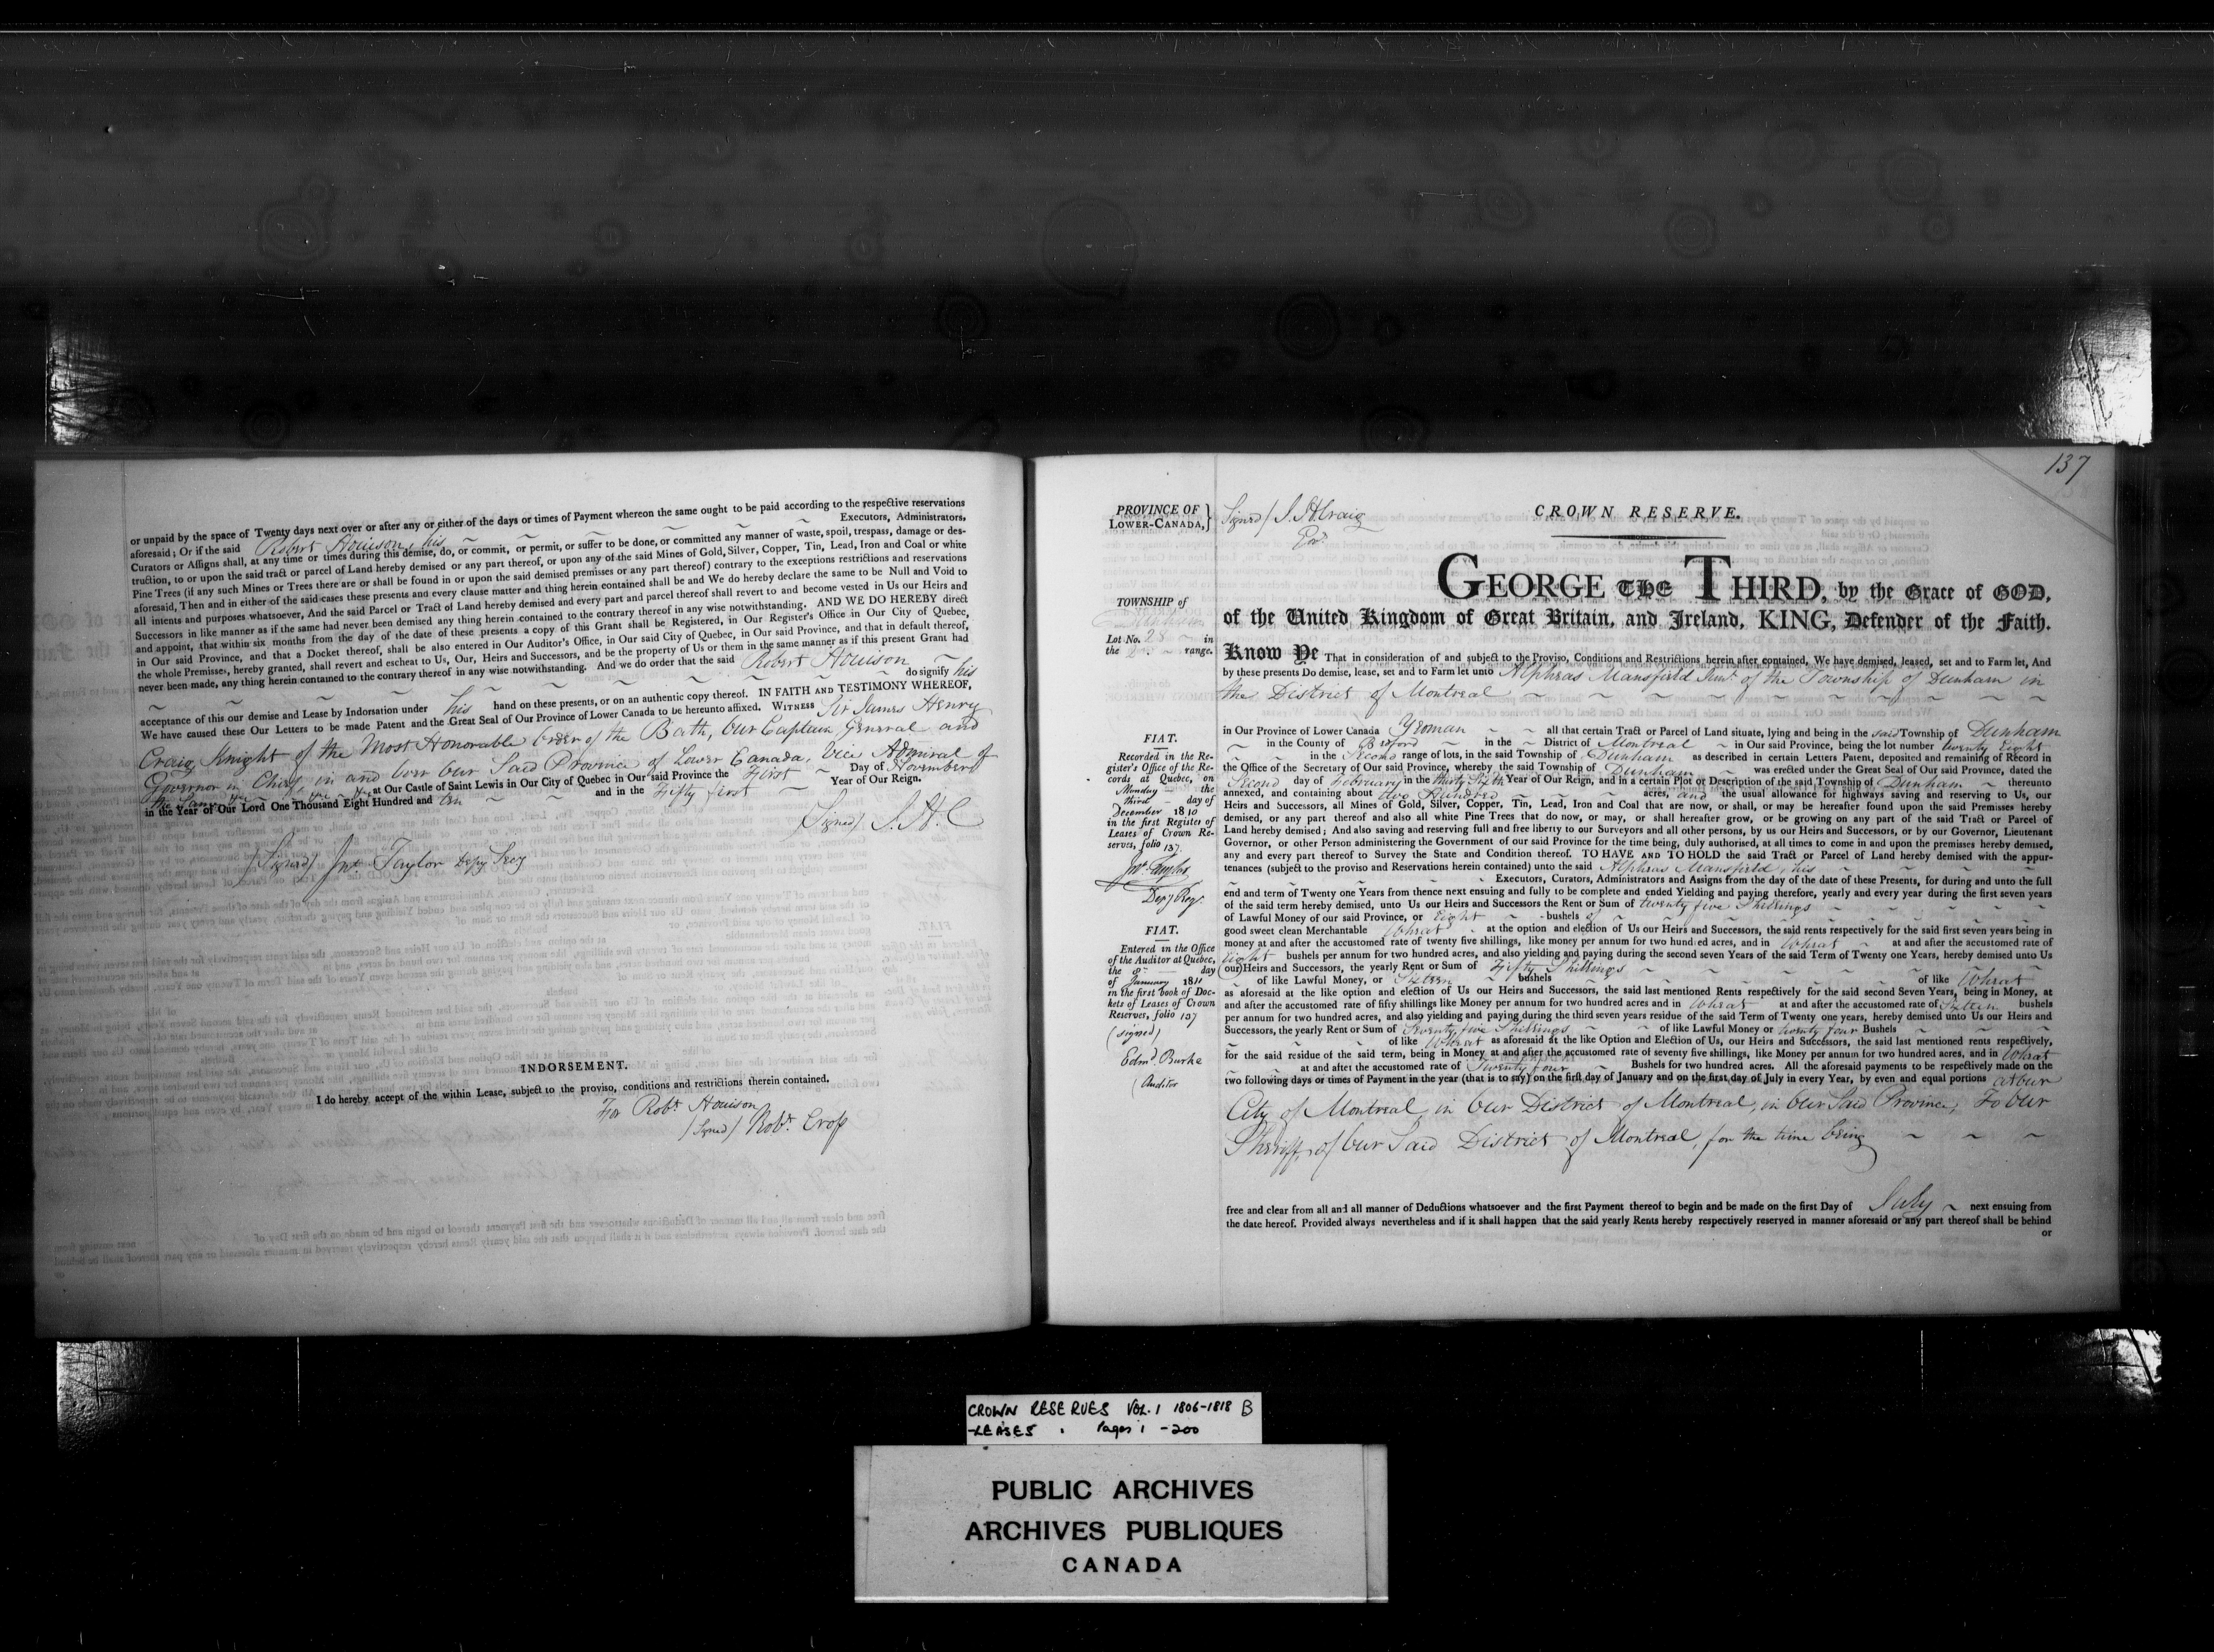 or unpaid by the space of Twenty days next over or after any or either of the days or times of Payment whereon the same ought to be paid according to the respective reservations
aforesaid; Or if the said Robert Houison, his Executors, Administrators,
Curators or Assigns shall, at any time or times during this demise, do, or commit, or permit, or suffer to be done, or committed any manner of waste, spoil, trespass, damage or des-
truction, to or upon the said tract or parcel of Land hereby demised or any part thereof, or upon any of the said Mines of Gold, Silver, Copper, Tin, Lead, Iron and Coal or white
Pine Trees (if any such Mines or Trees there are or shall be found in or upon the said demised premises or any part thereof) contrary to the exceptions restrictions and reservations
aforesaid, Then and in either of the said cases these presents and every clause matter and thing herein contained shall be and We do hereby declare the same to be Null and Void to
all intents and purposes whatsoever, And the said Parcel or Tract of Land hereby demised and every part and parcel thereof shall revert to and become vested in Us our Heirs and
Successors in like manner as if the same had never been demised any thing herein contained to the contrary thereof in any wise notwithstanding. AND WE DO HEREBY direct
and appoint, that within six months from the day of the date of these presents a copy of this Grant shall be Registered, in Our Register's Office in Our City of Quebec,
in Our said Province, and that a Docket thereof, shall be also entered in Our Auditor's Office, in Our said City of Quebec, in Our said Province, and that in default thereof,
the whole Premises, hereby granted, shall revert and escheat to Us, Our, Heirs and Successors, and be the property of Us or them in the same manner as if this present Grant had
never been made, any thing herein contained to the contrary thereof in any wise notwithstanding. And we do order that the said Robert Houison
do signify his
acceptance of this our demise and Lease by Indorsation under his hand on these presents, or on an authentic copy thereof. IN FAITH AND TESTIMONY WHEREOF,
We have caused these Our Letters to be made Patent and the Great Seal of Our Province of Lower Canada to be hereunto affixed. WITNESS Sir James Henry
Craig, Knight of the Most Honorable Order of the Bath, Our Captain General and
Governor in Chief in and over Our Said Province of Lower Canada, Vice Admiral of
the Same at Our Castle of Saint Lewis in Our City of Quebec in Our said Province the First Day of November
in the Year of Our Lord One Thousand Eight Hundred and ten and in the Fifty first Year of Our Reign.
(Signed) J. H. C
(Signed) Jno. Taylor Depy Secy
INDORSEMENT.
I do hereby accept of the within Lease, subject to the proviso, conditions and restrictions therein contained.
For Robt. Houison
(Signed) Robt. Cross
137
PROVINCE OF
LOWER-CANADA,
Signed/ J. H. Craig
Govr.
CROWN RESERVE.
GEORGE THE THIRD, by the Grace of GOD,
of the United Kingdom of Great Britain, and Ireland, KING, Defender of the Faith.
TOWNSHIP of
Dunham
Lot No. 28 in
the 2 range.
Know Ye That in consideration of and subject to the Proviso, Conditions and Restrictions herein after contained, We have demised, leased, set and to Farm let, And
by these presents Do demise, lease, set and to Farm let unto Alpheas Mansfield Junr. of the Township of Dunham in
the District of Montreal
in Our Province of Lower Canada Yeoman all that certain Tract or Parcel of Land situate, lying and being in the said Township of Dunham
in the County of Bedford in the District of Montreal in Our said Province, being the lot number twenty Eight
in the Second range of lots, in the said Township of Dunham as described in certain Letters Patent, deposited and remaining of Record in
the Office of the Secretary of Our said Province, whereby the said Township of Dunham was erected under the Great Seal of Our said Province, dated the
Second day of February in the thirty Sixth Year of Our Reign, and in a certain Plot or Description of the said Township of Dunham thereunto
annexed, and containing about two Hundred acres, and the usual allowance for highways saving and reserving to Us, our
Heirs and Successors, all Mines of Gold, Silver, Copper, Tin, Lead, Iron and Coal that are now, or shall, or may be hereafter found upon the said Premises hereby
demised, or any part thereof and also all white Pine Trees that do now, or may, or shall hereafter grow, or be growing on any part of the said Tract or Parcel of
Land hereby demised; And also saving and reserving full and free liberty to our Surveyors and all other persons, by us our Heirs and Successors, or by our Governor, Lieutenant
Governor, or other Person administering the Government of our said Province for the time being, duly authorised, at all times to come in and upon the premises hereby demised,
any and every part thereof to Survey the State and Condition thereof. TO HAVE AND TO HOLD the said Tract or Parcel of Land hereby demised with the appur-
tenances (subject to the proviso and Reservations herein contained) unto the said Alpheas Mansfield, his
Executors, Curators, Administrators and Assigns from the day of the date of these Presents, for during and unto the full
end and term of Twenty one Years from thence next ensuing and fully to be complete and ended Yielding and paying therefore, yearly and every year during the first seven years
of the said term hereby demised, unto Us our Heirs and Successors the Rent or Sum of twenty five Shillings
of Lawful Money of our said Province, or Eight bushels of
good sweet clean Merchantable Wheat at the option and election of Us our Heirs and Successors, the said rents respectively for the said first seven years being in
money at and after the accustomed rate of twenty five shillings, like money per annum for two hundred acres, and in Wheat at and after the accustomed rate of
Eight bushels per annum for two hundred acres, and also yielding and paying during the second seven Years of the said Term of Twenty one Years, hereby demised unto Us
(our) Heirs and Successors, the yearly Rent or Sum of Fifty Shillings
of like Lawful Money, or Sixteen bushels of like Wheat
as aforesaid at the like option and election of Us our Heirs and Successors, the said last mentioned Rents respectively for the said second Seven Years, being in Money, at
and after the accustomed rate of fifty shillings like Money per annum for two hundred acres and in Wheat at and after the accustomed rate of Sixteen bushels
per annum for two hundred acres, and also yielding and paying during the third seven years residue of the said Term of Twenty one years, hereby demised unto Us our Heirs and
Successors, the yearly Rent or Sum of Seventy five Shillings of like Lawful Money or twenty four Bushels
of like Wheat as aforesaid at the like Option and Election of Us, our Heirs and Successors, the said last mentioned rents respectively,
for the said residue of the said term, being in Money at and after the accustomed rate of seventy five shillings, like Money per annum for two hundred acres, and in Wheat
at and after the accustomed rate of Twenty four Bushels for two hundred acres. All the aforesaid payments to be respectively made on the
two following days or times of Payment in the year (that is to say) on the first day of January and on the first day of July in every Year, by even and equal portions at our
City of Montreal, in Our District of Montreal, in Our Said Province, To Our
Sheriff, of Our Said District of Montreal, for the time being
free and clear from all and all manner of Deductions whatsoever and the first Payment thereof to begin and be made on the first Day of July next ensuing from
the date hereof. Provided always nevertheless and if it shall happen that the said yearly Rents hereby respectively reserved in manner aforesaid or any part thereof shall be behind
or
FIAT.
Recorded in the Re-
gister's Office of the Re-
cords at Quebec, on
Monday the
third day of
December 1810
in the first Register of
Leases of Crown Re-
serves, folio 137.
Jno. Taylor
Depy Reg.
FIAT.
Entered in the Office
of the Auditor at Quebec,
the 8th day
of January 1811
in the first book of Doc-
kets of Leases of Crown
Reserves, folio 137
(signed)
Edmd Burke
Auditor
CROWN RESERVES VOL. 1 1806-1818 B
-LEASES. Pages 1 - 200
PUBLIC ARCHIVES
ARCHIVES PUBLIQUES
CANADA